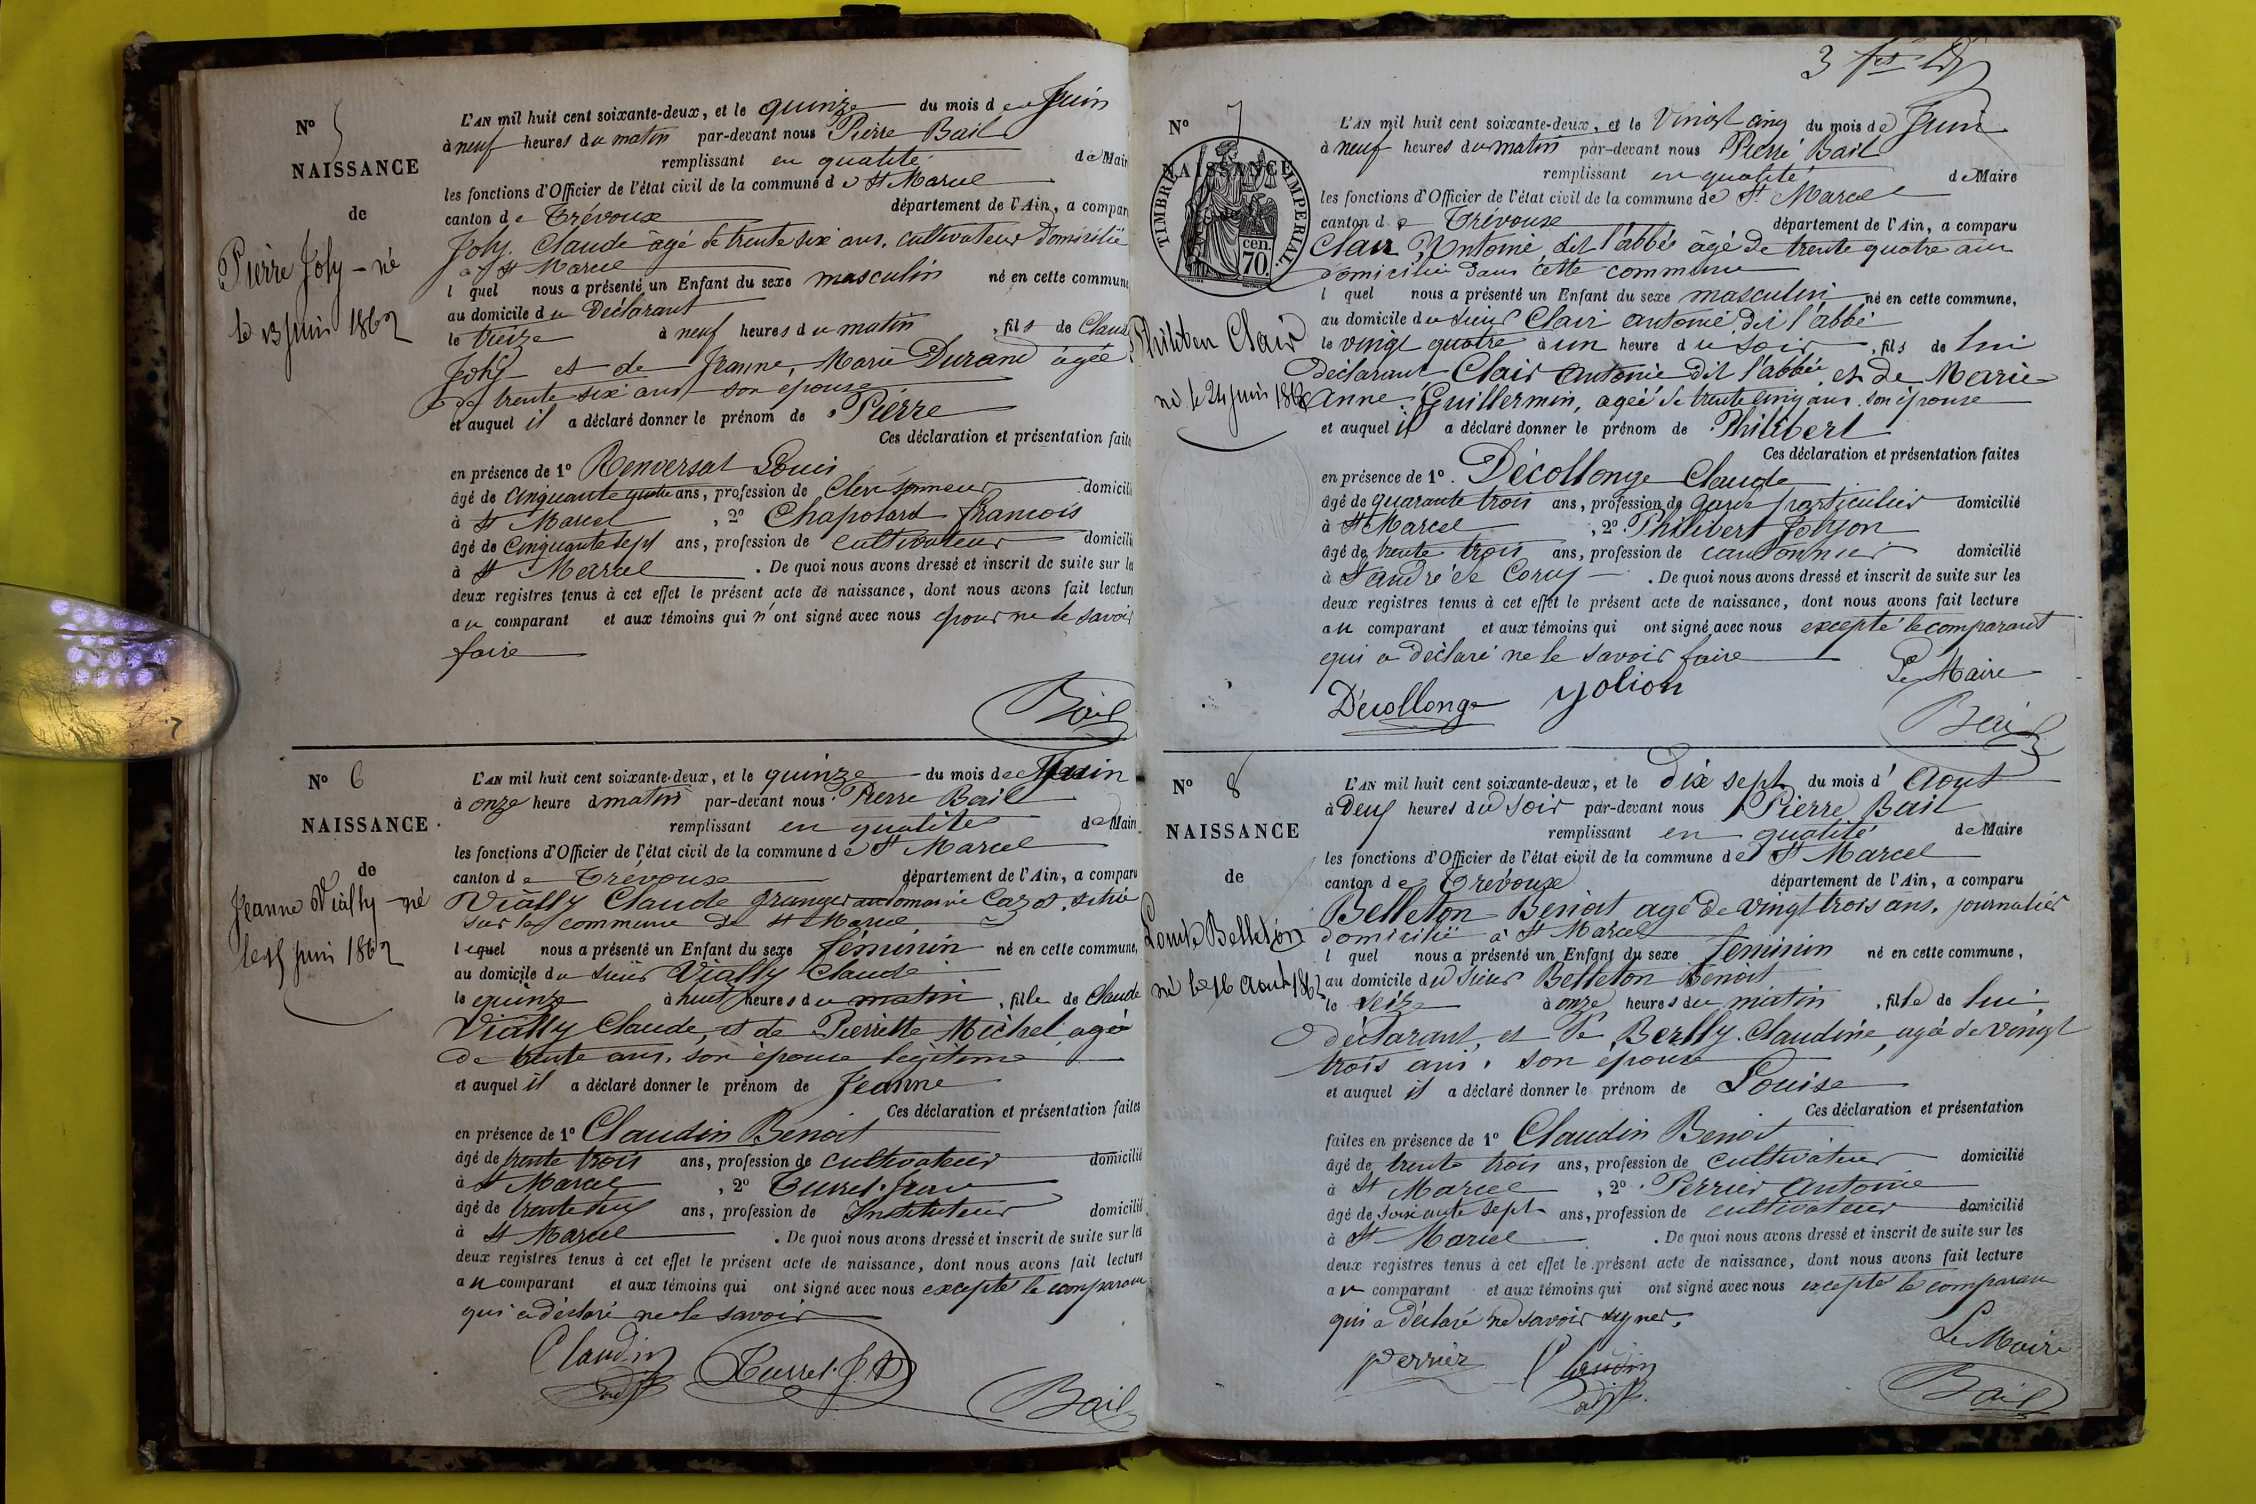 Nº 5
NAISSANCE
de
Pierre Joly - né
le 13 Juin 1862
L'AN mil huit cent soixante-deux, et le quinze du mois de Juin
à neuf heures du matin par-devant nous Pierre Bail
remplissant en qualité de Mair
les fonctions d'Officier de l'état civil de la commune de St Marcel
canton de Trévoux département de l'Ain, a compar
Joly Claude âgé de trente six ans, cultivateur domicilié
à St Marcel
l quel nous a présenté un Enfant du sexe masculin né en cette commune
au domicile du Déclarant
le treize à neuf heures du matin, fils de Claud
Joly et de Jeanne Marie Durand âgée
de trente six ans son épouse
et auquel il a déclaré donner le prénom de Pierre
Ces déclaration et présentation faite
en présence de 1º Renversat Louis
âgé de cinquante quatre ans, profession de domicili
à St Marcel, 2º Chapolard françois
âgé de Cinquante sept ans, profession de cultivateur domicili
à St Marcel. De quoi nous avons dressé et inscrit de suite sur le
deux registres tenus à cet effet le présent acte de naissance, dont nous avons fait lectur
au comparant et aux témoins qui n'ont signé avec nous pour ne le savoir
faire
Bail
Nº 6
NAISSANCE
de
Jeanne Vially - né
le 15 Juin 1862
L'AN mil huit cent soixante-deux, et le quinze du mois de Juin
à onze heure d matin par-devant nous Pierre Bail
remplissant en qualité de Mair
les fonctions d'Officier de l'état civil de la commune de St Marcel
canton de Trévoux département de l'Ain, a comparu
Vially Claude granger au domaine Cazot, situé
sur la commune de St Marcel
lequel nous a présenté un Enfant du sexe féminin né en cette commune,
au domicile du sieur Vially Claude
le quinze à huit heures du matin, fille de Claude
Vially Claude, et de Pierrette Michel, agé
de trente ans, son épouse légitime
et auquel il a déclaré donner le prénom de Jeanne
Ces déclaration et présentation faites
en présence de 1º Claudin Benoit
âgé de trente trois ans, profession de cultivateur domicilié
à St Marcel, 2º Turrel
âgé de ans, profession de Instituteur domicilié
à St Marcel. De quoi nous avons dressé et inscrit de suite sur les
deux registres tenus à cet effet le présent acte de naissance, dont nous avons fait lecture
au comparant et aux témoins qui ont signé avec nous excepté le comparan
qui a déclaré ne le savoir
Claudin Turrel Bail
3 fet
Nº 7
NAISSANCE
TIMBRE IMPERIAL
70 cen.
Philibert Clair
né le 24 juin 1862
L'AN mil huit cent soixante-deux, et le Vingt cinq du mois de Juin
à neuf heures du matin par-devant nous Pierre Bail
remplissant en qualité de Maire
les fonctions d'Officier de l'état civil de la commune de St Marcel
canton de Trévoux département de l'Ain, a comparu
Clair Antoine dit l'abbé âgé de trente quatre ans
domicilié dans cette commune
l quel nous a présenté un Enfant du sexe masculin né en cette commune,
au domicile du sieur Clair antoine dit l'abbé
le vingt quatre à un heure du soir, fils de lui
déclarant Clair Antoine dit l'abbé et de Marie
anne Guillermin, agée de trente cinq ans son épouse
et auquel il a déclaré donner le prénom de Philibert
Ces déclaration et présentation faites
en présence de 1º. Décollonge Claude
âgé de quarante trois ans, profession de garde particulier domicilié
à St Marcel, 2º Philibert Jolyon
âgé de trente trois ans, profession de cantonnier domicilié
à St andré de Corcy. De quoi nous avons dressé et inscrit de suite sur les
deux registres tenus à cet effet le présent acte de naissance, dont nous avons fait lecture
au comparant et aux témoins qui ont signé avec nous excepté le comparant
qui a déclaré ne le savoir faire
Le Maire
Décollonge Yolion
Bail
Nº 8
NAISSANCE
de
Louise Belleton
né le 16 aout 1862
L'AN mil huit cent soixante-deux, et le dix sept du mois d' Aout
à Deux heures du soir par-devant nous Pierre Bail
remplissant en qualité de Maire
les fonctions d'Officier de l'état civil de la commune de St Marcel
canton de Trévoux département de l'Ain, a comparu
Belleton Benoit agé de vingt trois ans, journalier
domicilié à St Marcel
l quel nous a présenté un Enfant du sexe féminin né en cette commune,
au domicile du sieur Belleton Benoit
le seize à onze heures du matin, fille de lui
déclarant, et de Berlly Claudine, agée de vingt
trois ans, son épouse
et auquel il a déclaré donner le prénom de Louise
Ces déclaration et présentation
faites en présence de 1º Claudin Benoit
âgé de trente trois ans, profession de cultivateur domicilié
à St Marcel, 2º Perrier Antoine
âgé de soixante sept ans, profession de cultivateur domicilié
à St Marcel. De quoi nous avons dressé et inscrit de suite sur les
deux registres tenus à cet effet le présent acte de naissance, dont nous avons fait lecture
au comparant et aux témoins qui ont signé avec nous excepté le comparan
qui a déclaré ne savoir signer.
Le Maire
perrier Claudin
Bail